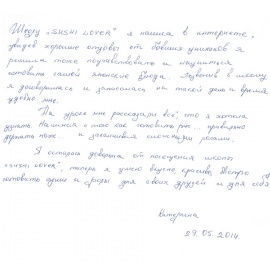 Школу "SUSHI LOVER" я нашла в интернете,
увидев хорошие отзывы от бывших учеников я
решила тоже поучаствовать и научиться
готовить самой японские блюда. Позвонив в школу
я договорилась и записалась на такой день и время
удобно мне.
На уроке мне рассказали всё, что я хотела
узнать. Начиная с того как готовить рис, правильно
держать нож... и заканчивая роллами.
Я осталась довольна от посещения школы
"SUSHI LOVER", теперь я умею вкусно, красиво, быстро
готовить суши и роллы для своих друзей и для себя
Катерина
29.05.2014.